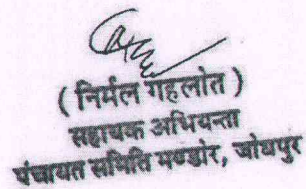 ( निर्मल गहलोत )
सहायक अभियन्ता
पंचायत समिति मण्डोर, जोधपुर